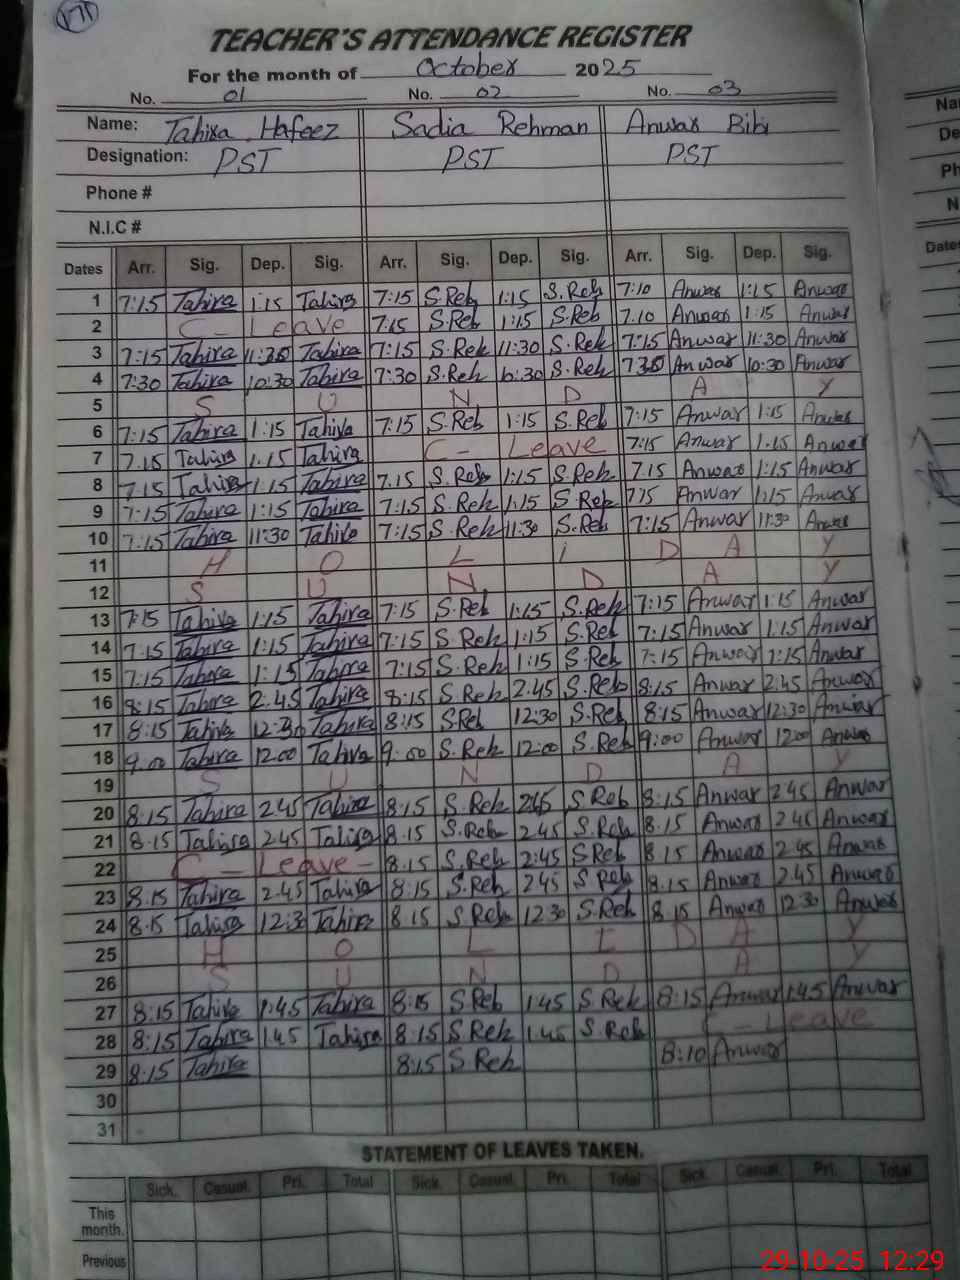 TEACHER'S ATTENDANCE REGISTER
For the month of October 2025
No. 01 No. 02 No. 03
Name: Tahira Hafeez Sadia Rehman Anwar Bibi
Designation: PST PST PST
Phone #
N.I.C #
Dates Arr. Sig. Dep. Sig. Arr. Sig. Dep. Sig. Arr. Sig. Dep. Sig.
1 7:15 Tahira 1:15 Tahira 7:15 S.Reh 1:15 S.Reh 7:10 Anwar 1:15 Anwar
2 C- Leave 7:15 S.Reh 1:15 S.Reh 7.10 Anwar 1:15 Anwar
3 7:15 Tahira 11:30 Tahira 7:15 S.Reh 11:30 S.Reh 7:15 Anwar 11:30 Anwar
4 7:30 Tahira 10:30 Tahira 7:30 S.Reh 10:30 S.Reh 7:30 Anwar 10:30 Anwar
5 S U N D A Y
6 7:15 Tahira 1:15 Tahira 7:15 S.Reh 1:15 S.Reh 7:15 Anwar 1:15 Anwar
7 7.15 Tahira 1.15 Tahira C- Leave 7:15 Anwar 1.15 Anwar
8 7.15 Tahira 1.15 Tahira 7.15 S.Reh 1:15 S.Reh 7.15 Anwar 1:15 Anwar
9 7:15 Tahira 1:15 Tahira 7:15 S.Reh 1:15 S.Reh 7:15 Anwar 1:15 Anwar
10 7:15 Tahira 11:30 Tahira 7:15 S.Reh 11:30 S.Reh 7:15 Anwar 11:30 Anwar
11 H O L i D A Y
12 S U N D A Y
13 7:15 Tahira 1:15 Tahira 7:15 S.Reh 1:15 S.Reh 7:15 Anwar 1:15 Anwar
14 7:15 Tahira 1:15 Tahira 7:15 S.Reh 1:15 S.Reh 7:15 Anwar 1:15 Anwar
15 7:15 Tahira 1:15 Tahira 7:15 S.Reh 1:15 S.Reh 7:15 Anwar 1:15 Anwar
16 8:15 Tahira 2.45 Tahira 8:15 S.Reh 2.45 S.Reh 8:15 Anwar 2:45 Anwar
17 8:15 Tahira 12:30 Tahira 8:15 S.Reh 12:30 S.Reh 8:15 Anwar 12:30 Anwar
18 9.00 Tahira 12.00 Tahira 9:00 S.Reh 12:00 S.Reh 9:00 Anwar 12.00 Anwar
19 S U N D A Y
20 8:15 Tahira 2.45 Tahira 8:15 S.Reh 2.45 S.Reh 8:15 Anwar 2.45 Anwar
21 8.15 Tahira 2.45 Tahira 8.15 S.Reh 2.45 S.Reh 8.15 Anwar 2.45 Anwar
22 C - Leave - 8.15 S.Reh 2:45 S.Reh 8.15 Anwar 2.45 Anwar
23 8:15 Tahira 2.45 Tahira 8:15 S.Reh 2.45 S.Reh 8.15 Anwar 2.45 Anwar
24 8:15 Tahira 12:30 Tahira 8.15 S.Reh 12.30 S.Reh 8.15 Anwar 12.30 Anwar
25 H O L I D A Y
26 S U N D A Y
27 8:15 Tahira 1:45 Tahira 8:15 S.Reh 1.45 S.Reh 8:15 Anwar 1.45 Anwar
28 8:15 Tahira 1.45 Tahira 8:15 S.Reh 1.45 S.Reh C-Leave
29 8:15 Tahira 8:15 S.Reh 8:10 Anwar
30
31
STATEMENT OF LEAVES TAKEN.
Sick. Casual. Pri. Total Sick. Casual. Pri. Total Sick. Casual. Pri. Total
This month.
Previous
29-10-25 12:29